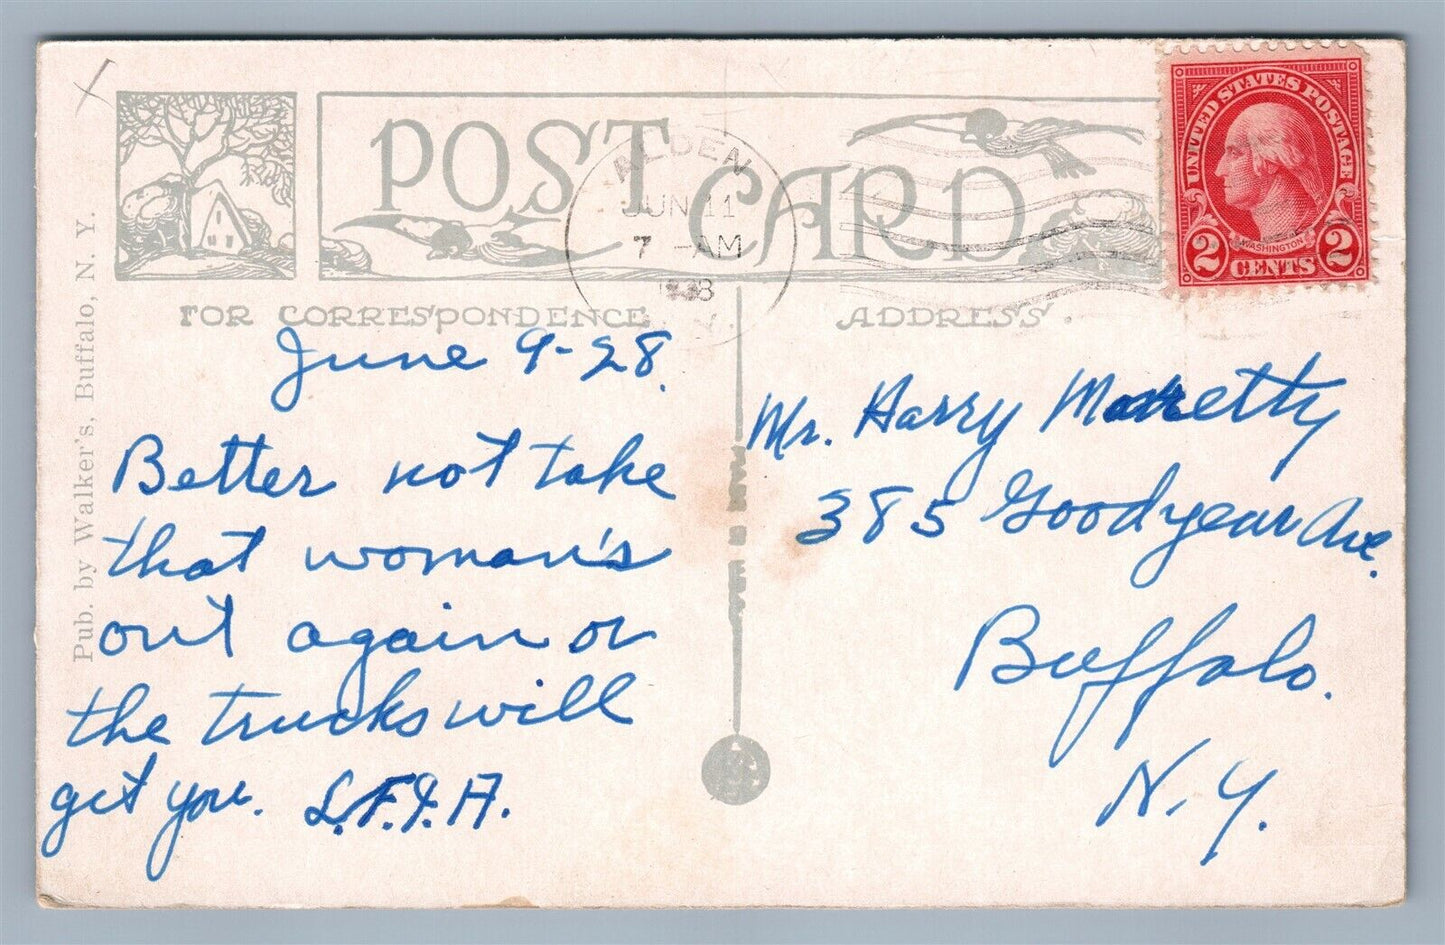 POST CARD
ALDEN
JUN 11
7 -AM
N.Y.
UNITED STATES POSTAGE
WASHINGTON
2 CENTS 2
FOR CORRESPONDENCE
ADDRESS
Pub. by Walker's, Buffalo, N. Y.
June 9-28.
Better not take
that woman's
out again or
the trucks will
get you. L.F.J.H.
Mr. Harry
385 Goodyear Ave.
Buffalo.
N.Y.